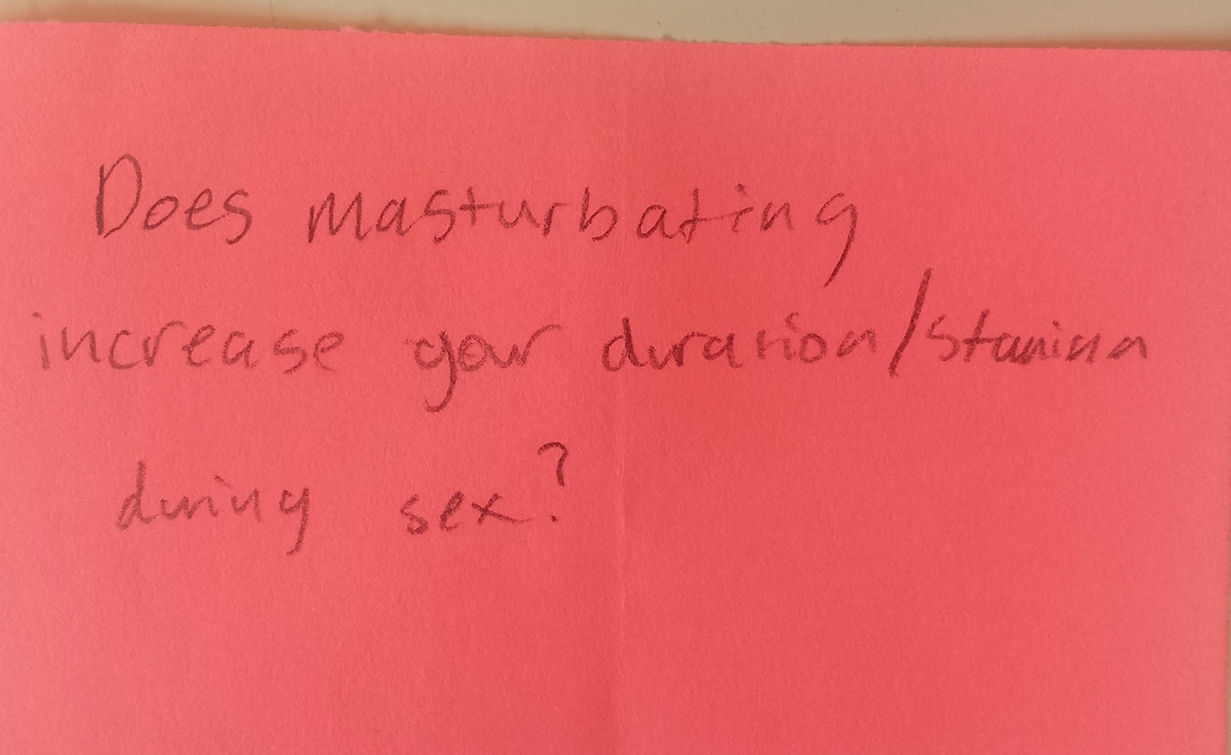 Does masturbating
increase your duration/stamina
during sex?